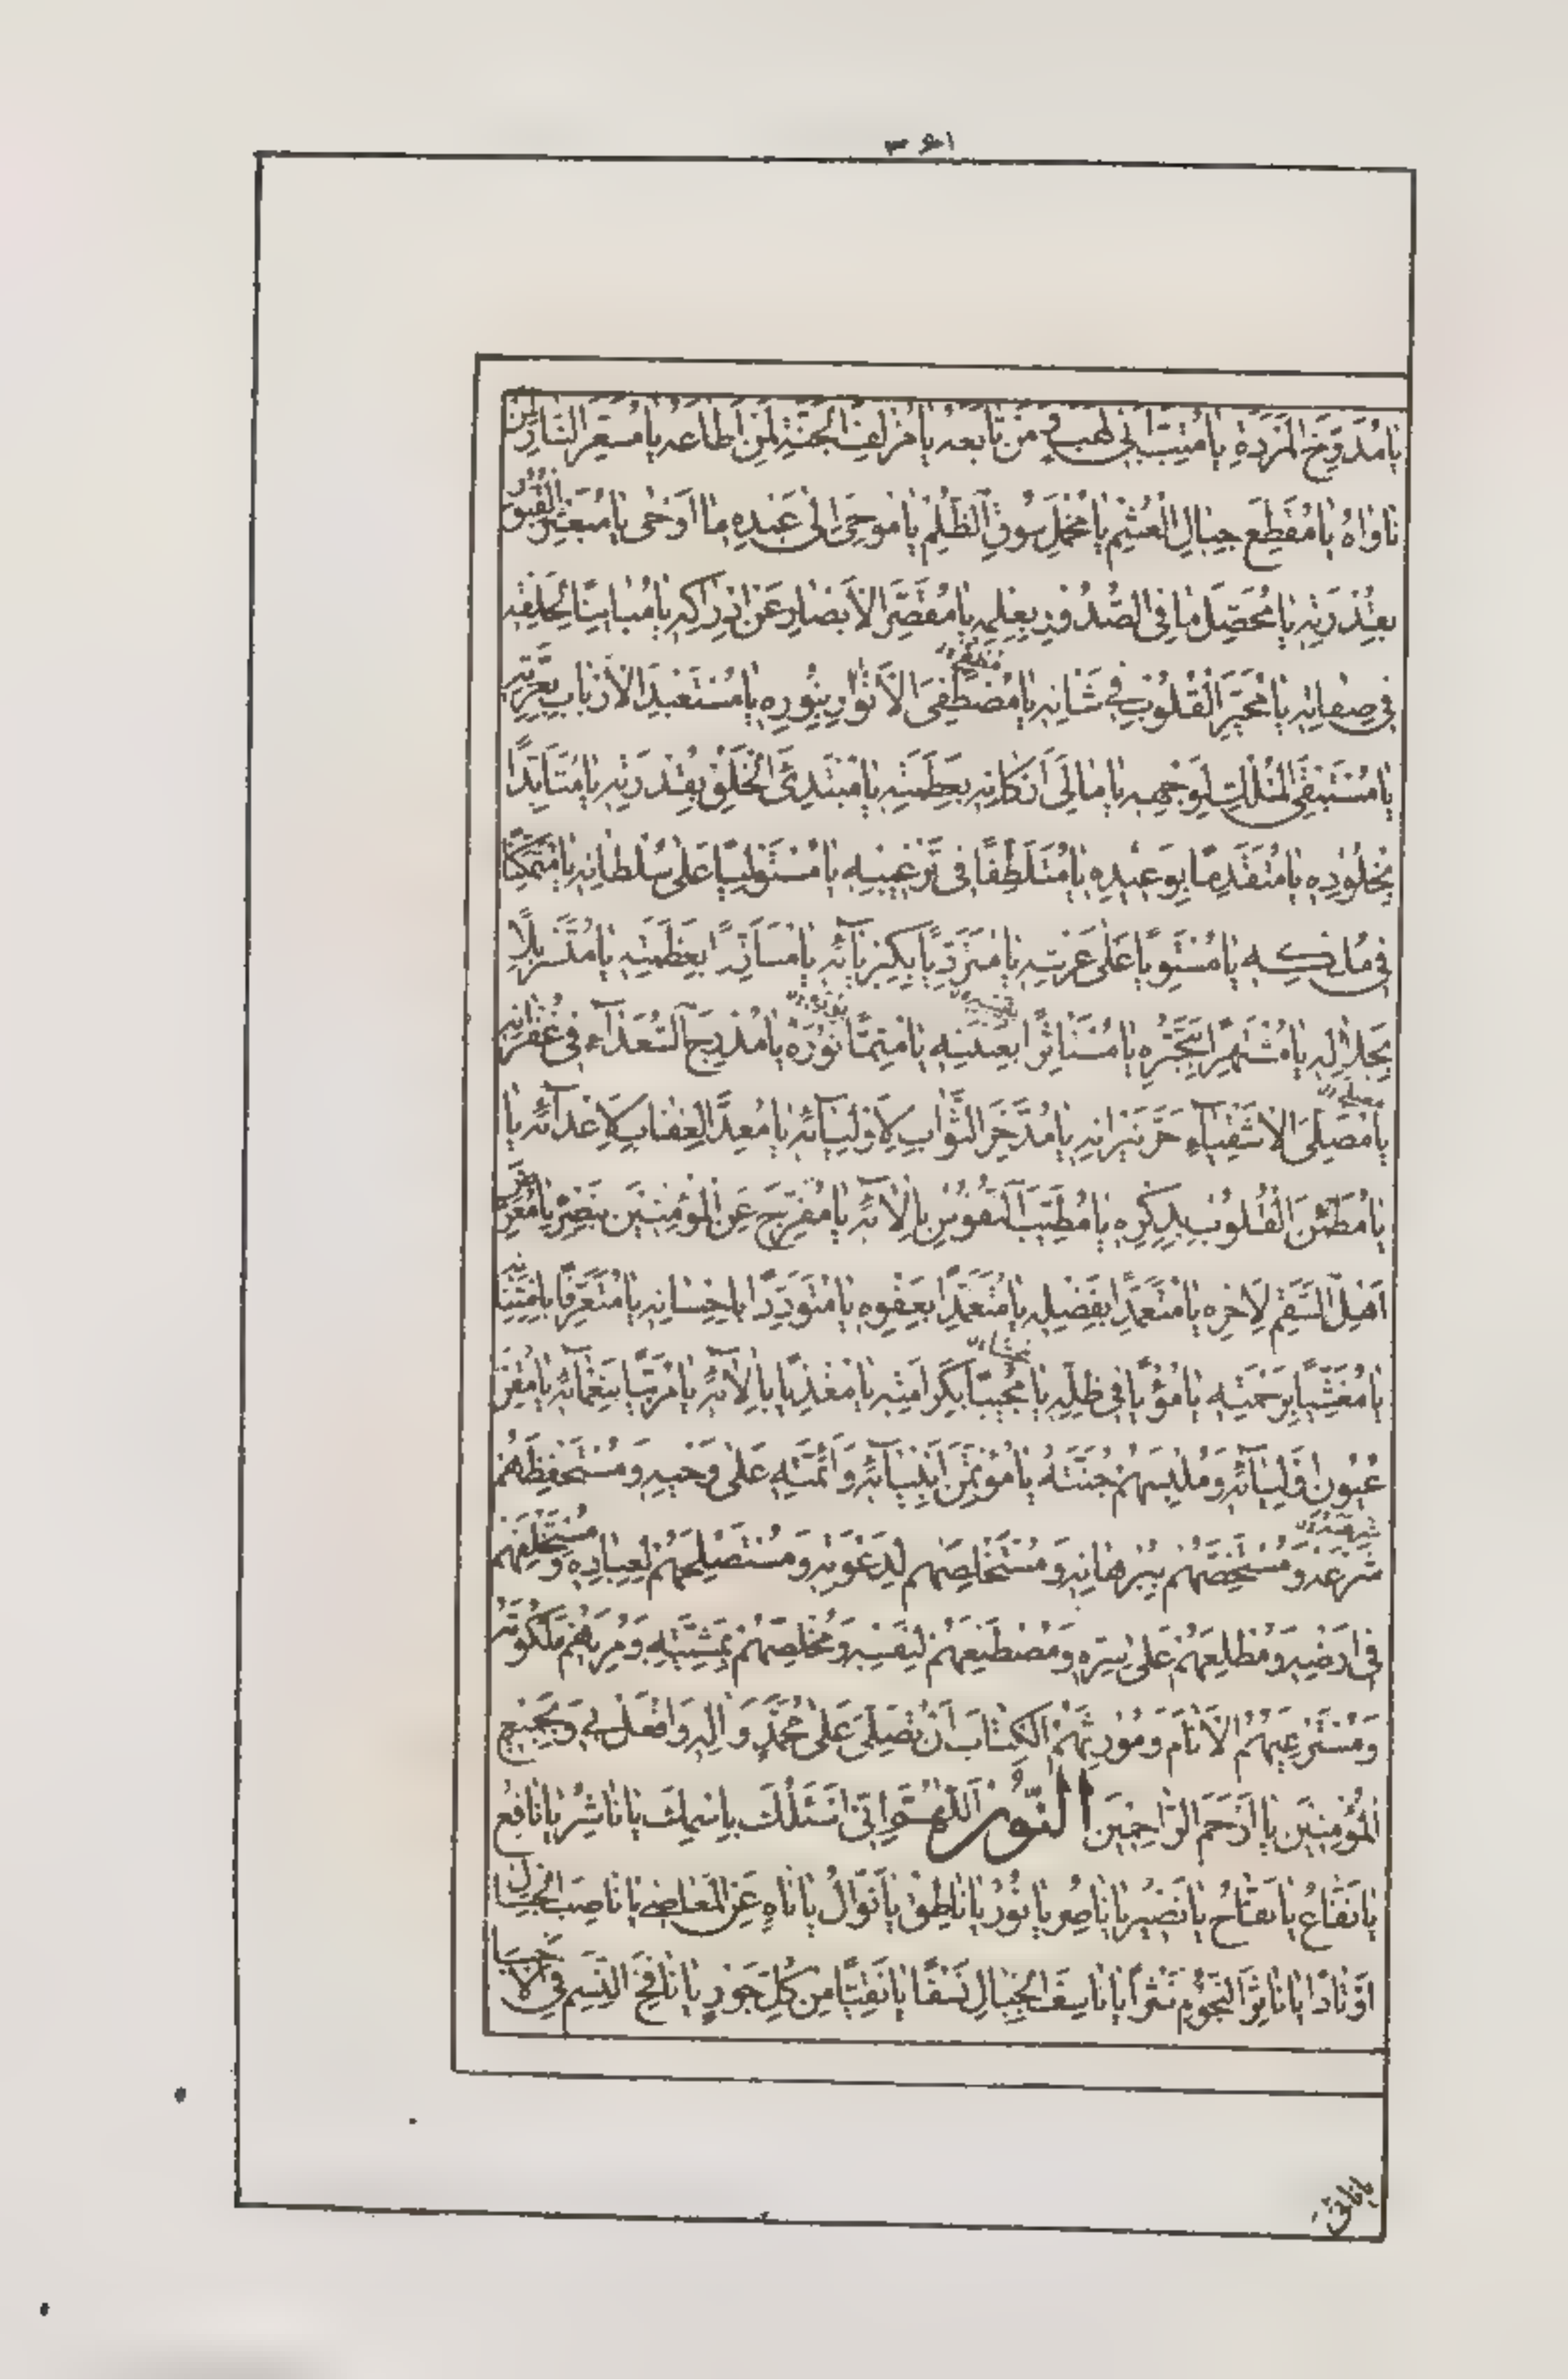 ٣٦١
يا مُدَوِّخَ المَرَدَةِ يا مُتِبَّ أبي لَهَبٍ و مَن تابَعَهُ يا مُزْلِفَ الجَنَّةِ لِمَن اَطاعَهُ يا مُسَعِّرَ النّارِ لِمَن
ناواهُ يا مُقَطِّعَ حِبالِ الغَشْمِ يا مُخْمِلَ سُوقِ الظُّلْمِ يا مُوحِيَ اِلى عَبْدِهِ ما اَوْحى يا مُبَعْثِرَ القُبُورِ
بِقُدْرَتِهِ يا مُحَصِّلَ ما فِي الصُّدُورِ بِعِلْمِهِ يا مُقَصِّرَ الاَبْصارِ عَنْ اِدْراكِهِ يا مُبايِنًا لِخَلْقِهِ
في صِفاتِهِ يا مُحَيِّرَ القُلُوبِ في شَانِهِ يا مُصْطَفِيَ الاَنْوارِ بِنُورِهِ يا مُسْتَعْبِدَ الاَرْبابِ بِعِزَّتِهِ
يا مُسْتَبْقِيَ المُلْكِ لِوَجْهِهِ يا مالِئَ اَرْكانِهِ بِعَظَمَتِهِ يا مُبْتَدِئَ الخَلْقِ بِقُدْرَتِهِ يا مُتَاَبِّدًا
بِخُلُودِهِ يا مُتَقَدِّمًا بِوَعيدِهِ يا مُتَلَطِّفًا في تَرْغيبِهِ يا مُسْتَولِيًا عَلى سُلْطانِهِ يا مُتَمَكِّنًا
في مُلْكِهِ يا مُسْتَوِيًا عَلى عِزَّتِهِ يا مُتَرَدِّيًا بِكِبْرِيائِهِ يا مُتَاَزِّرًا بِعَظَمَتِهِ يا مُتَسَرْبِلًا
بِجَلالِهِ يا مُشْتَهِرًا بِتَجَبُّرِهِ يا مُسْتَاثِرًا بِغَيْبِهِ يا مُتِمًّا نُورَهُ يا مُدْرِجَ السُّعَداءِ في غُفْرانِهِ
يا مُصْلِيَ الاَشْقِياءِ حَرَّ نيرانِهِ يا مُدَّخِرَ الثَّوابِ لِاَوْلِيائِهِ يا مُعِدَّ العِقابِ لِاَعْدائِهِ يا
يا مُطَمْئِنَ القُلُوبِ بِذِكْرِهِ يا مُطَيِّبَ النُّفُوسِ بِالآئِهِ يا مُفَرِّجَ عَنِ المُؤْمِنينَ بِنَصْرِهِ يا مُعَرِّضَ
اَهْلِ السَّقَمِ لِاَجْرِهِ يا مُتَعَمِّدًا بِفَضْلِهِ يا مُتَغَمِّدًا بِعَفْوِهِ يا مُتَوَدِّدًا بِاِحْسانِهِ يا مُتَعَرِّفًا بِامْتِنانِهِ
يا مُغَشِّيًا بِرَحْمَتِهِ يا مُؤْوِيًا في ظِلِّهِ يا مُجيبًا بِكَرامَتِهِ يا مُغَذِّيًا بِالآئِهِ يا مُرَبِّيًا بِنَعْمائِهِ يا مُقِرَّ
عُيُونِ اَوْلِيائِهِ وَ مُلْبِسَهُمْ جُنَّتَهُ يا مُؤْتَمِنَ اَنْبِيائِهِ وَ اَئِمَّتِهِ عَلى وَحْيِهِ وَ مُسْتَحْفِظَهُمْ
شَرْعَهُ وَ مُسْتَخِصَّهُمْ بِبُرْهانِهِ وَ مُسْتَخْلِصَهُمْ لِدَعْوَتِهِ وَ مُسْتَصْلِحَهُمْ لِعِبادِهِ وَ مُسْتَخْلِفَهُمْ
في اَرْضِهِ وَ مُطْلِعَهُمْ عَلى سِرِّهِ وَ مُصْطَنِعَهُمْ لِنَفْسِهِ وَ مُخْلِصَهُمْ بِمَشِيَّتِهِ وَ مُرِيَهُمْ مَلَكُوتَهُ
وَ مُسْتَرْعِيَهُمُ الاَنامَ وَ مُورِثَهُمُ الكِتابَ اَنْ تُصَلِّيَ عَلى مُحَمَّدٍ وَ الِهِ وَ افْعَلْ بي وَ بِجَميعِ
المُؤْمِنينَ يا اَرْحَمَ الرّاحِمينَ النُّور اَللّهُمَّ اِنّي اَسْئَلُكَ بِاسْمِكَ يا ناشِرُ يا نافِعُ
يا نَفّاعُ يا نَفّاحُ يا نَصيرُ يا ناصِرُ يا نُورُ يا ناطِقُ يا نَوّالُ يا ناهٍ عَنِ المَعاصي يا ناصِبَ الجِبالِ
اَوْتادًا يا ناثِرَ النُّجُومِ نَثْرًا يا ناسِفَ الجِبالِ نَسْفًا يا نَقِيًّا مِنْ كُلِّ جَوْرٍ يا نافِخَ النَّسَمِ فِي الاَجْسادِ